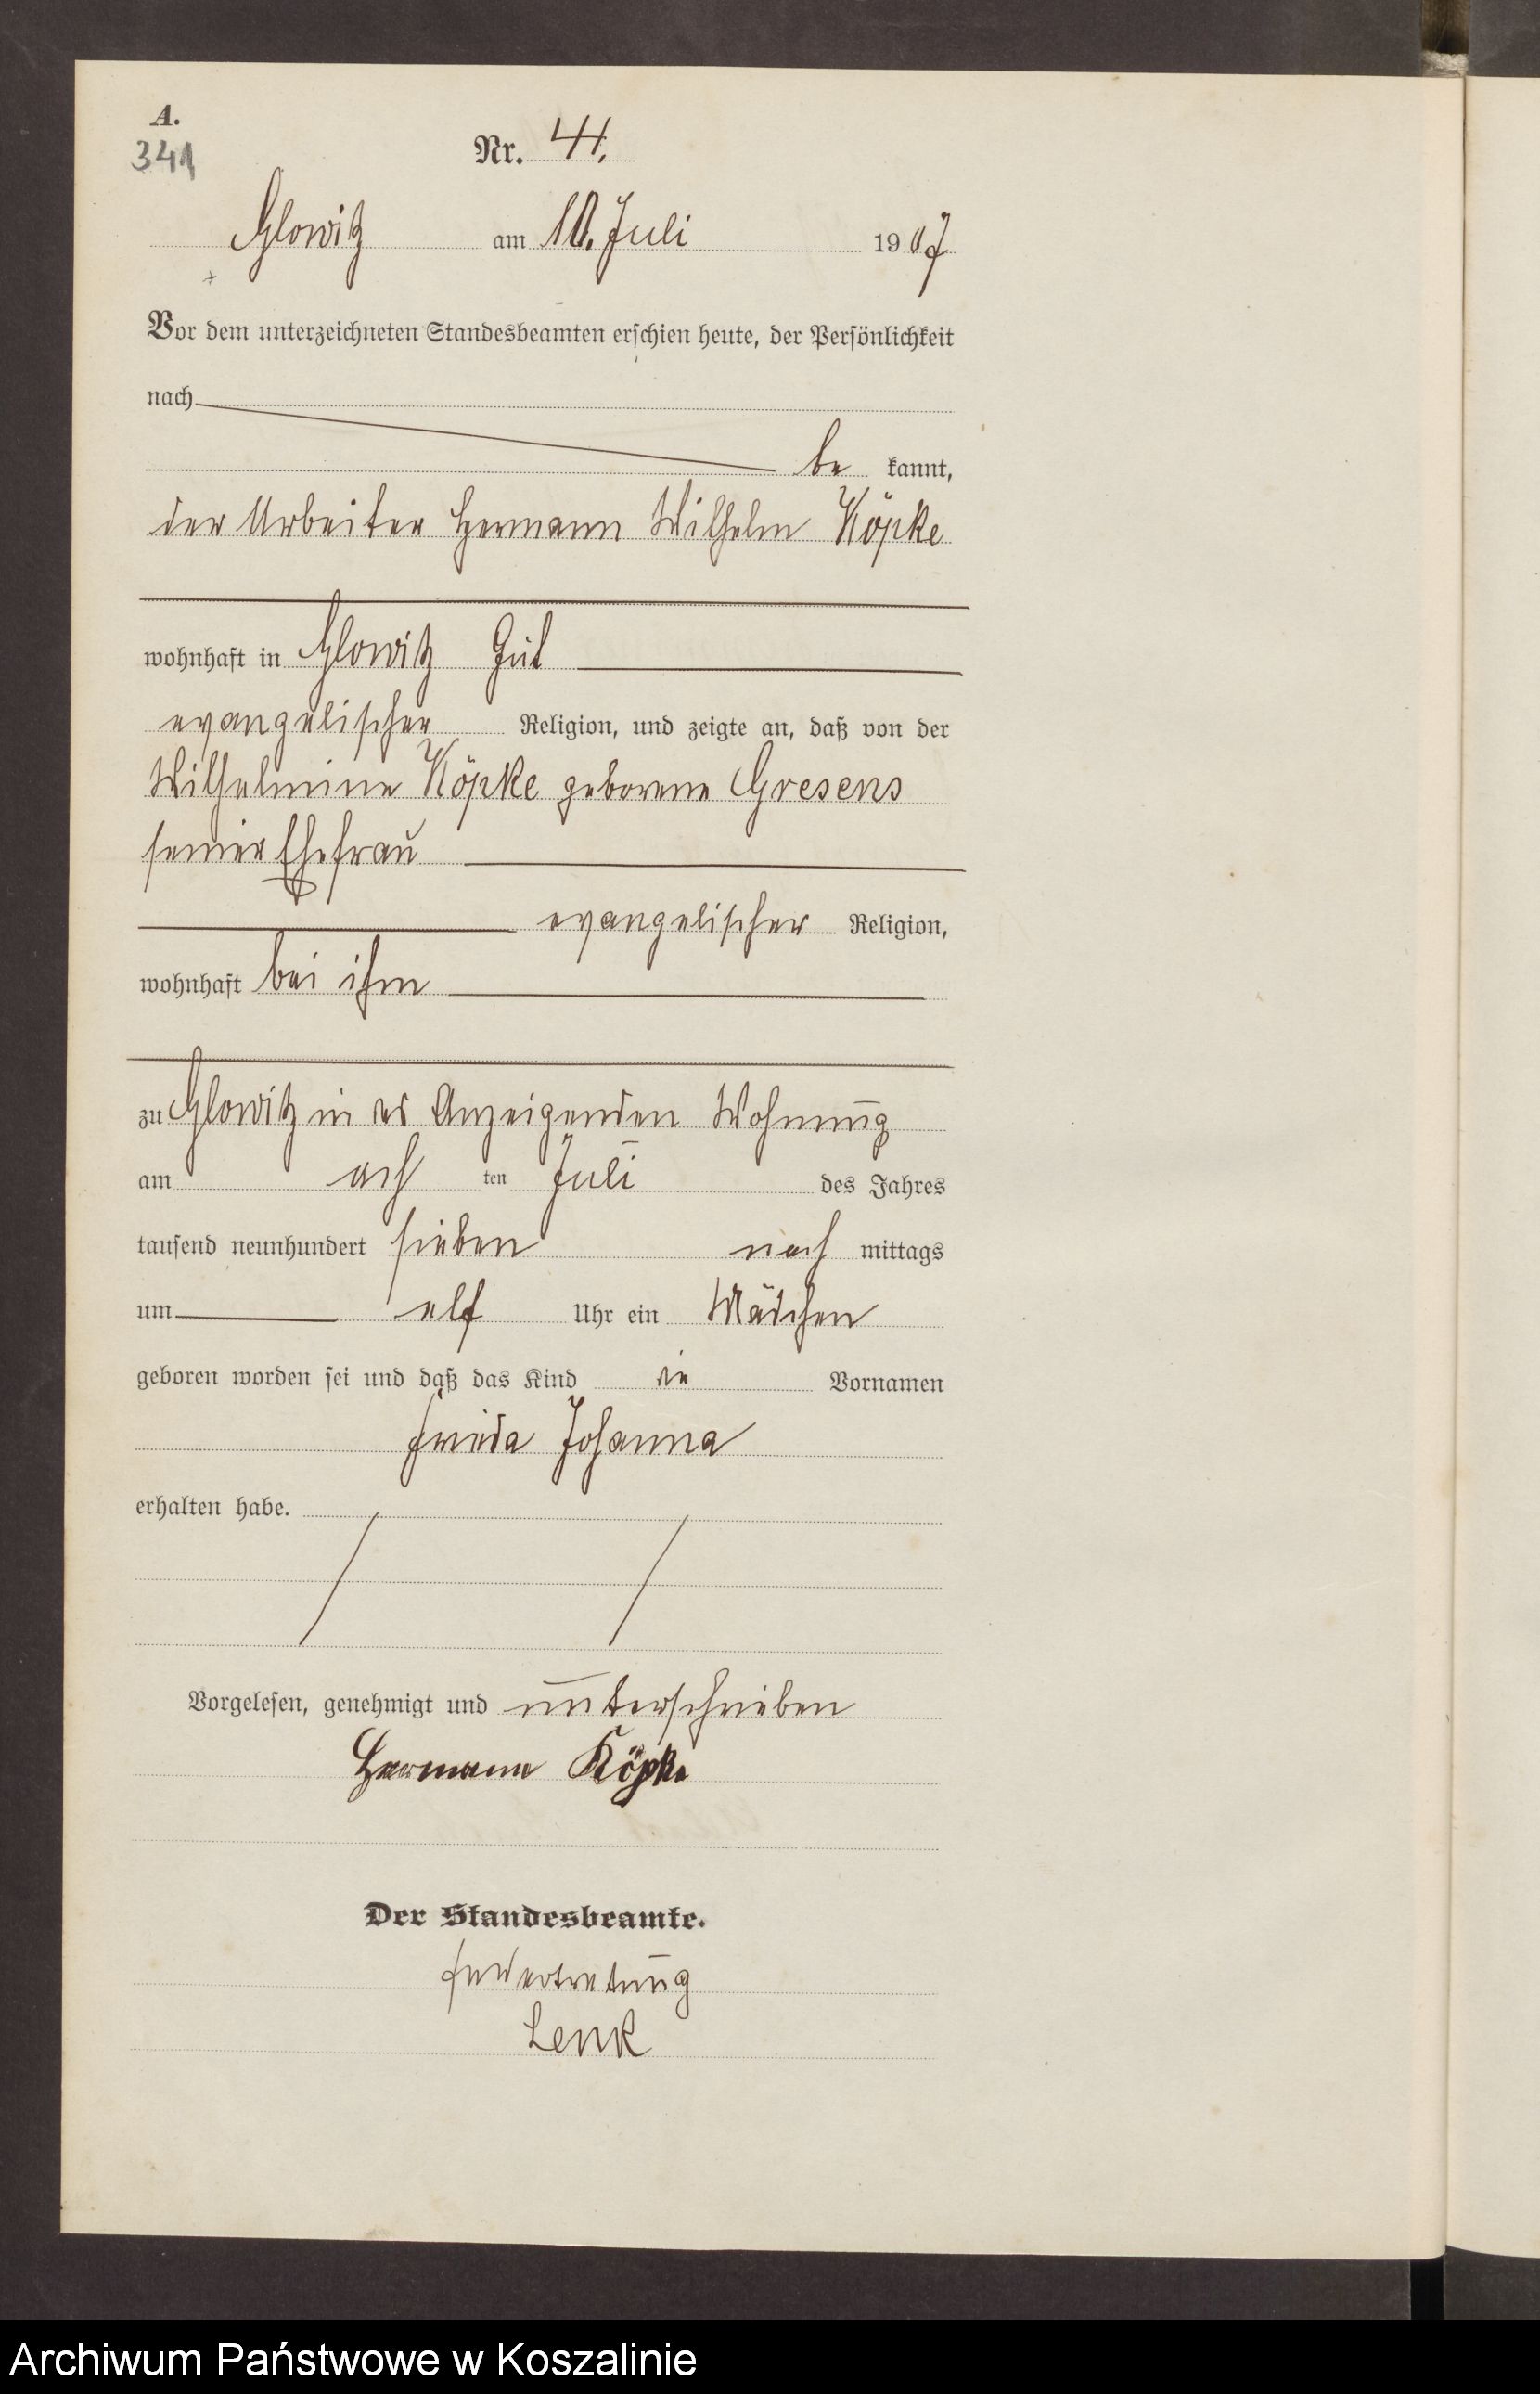 A.
341
Nr. 41.
Glowitz am 10. Juli 1907
Vor dem unterzeichneten Standesbeamten erschien heute, der Persönlichkeit
nach
be kannt,
der Arbeiter Hermann Wilhelm Köpke
wohnhaft in Glowitz Gut
evangelischer Religion, und zeigte an, daß von der
Wilhelmine Köpke geborene Gresens
seiner Ehefrau
evangelischer Religion,
wohnhaft bei ihm
zu Glowitz in des Anzeigenden Wohnung
am ach ten Juli des Jahres
tausend neunhundert sieben nach mittags
um elf Uhr ein Mädchen
geboren worden sei und daß das Kind die Vornamen
Frieda Johanna
erhalten habe.
Vorgelesen, genehmigt und unterschrieben
Hermann Köpke
Der Standesbeamte.
In Vertretung
Lenk
Archiwum Państwowe w Koszalinie